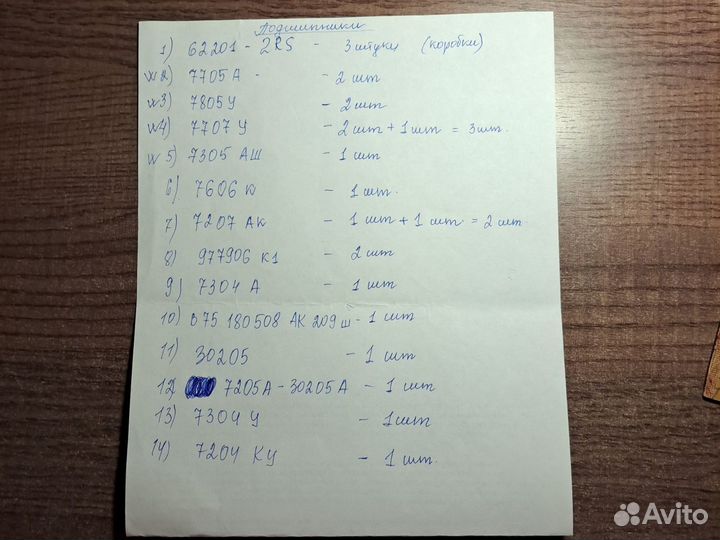 Подшипники
1) 62201 - 2RS - 3 штуки (коробки)
v 2) 7705 А - - 2 шт
v 3) 7805 У - 2 шт
v 4) 7707 У - 2 шт + 1 шт = 3 шт.
v 5) 7305 АШ - 1 шт
6) 7606 К - 1 шт.
7) 7207 АК - 1 шт + 1 шт = 2 шт
8) 977906 К1 - 2 шт
9) 7304 А - 1 шт
10) 075 180508 АК 209 ш - 1 шт
11) 30205 - 1 шт
12) 7205 А - 30205 А - 1 шт
13) 7304 У - 1 шт
14) 7204 КУ - 1 шт.
Avito